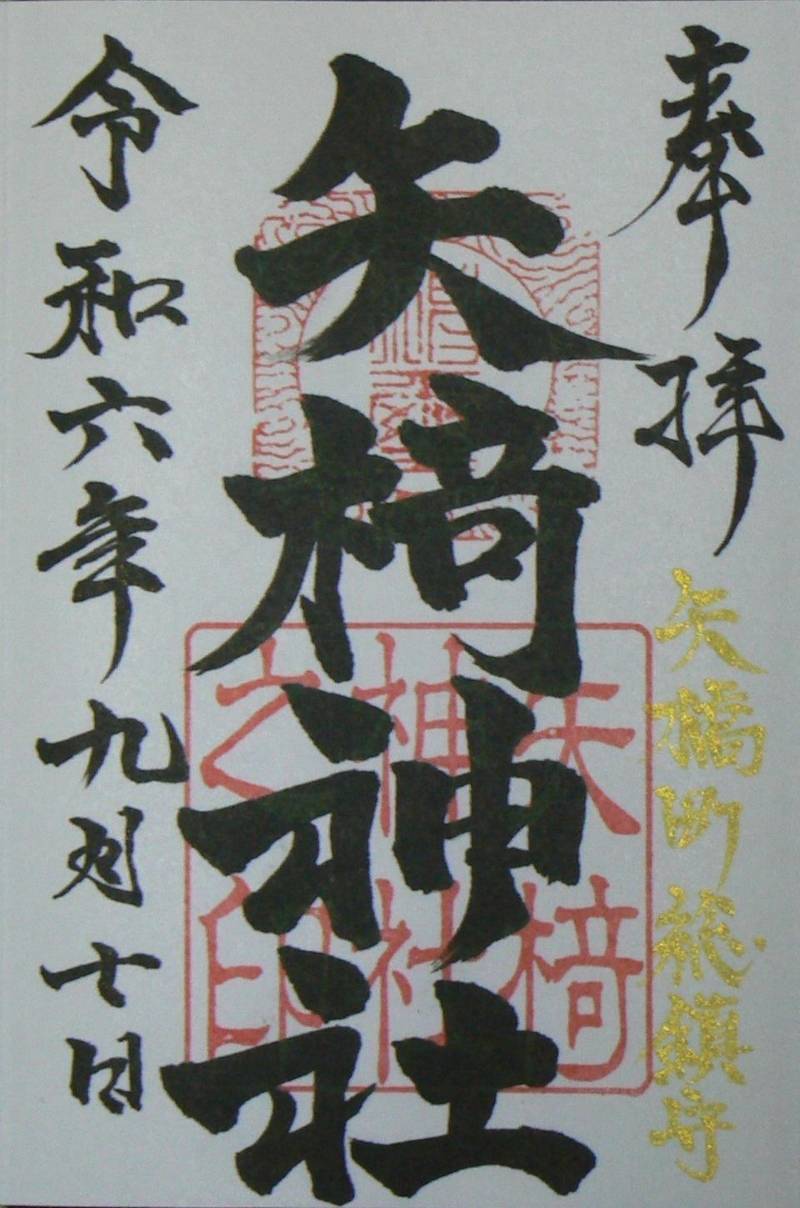 奉拝
矢橋町総鎮守
矢椅神社
矢椅
神社
之印
令和六年九月十日